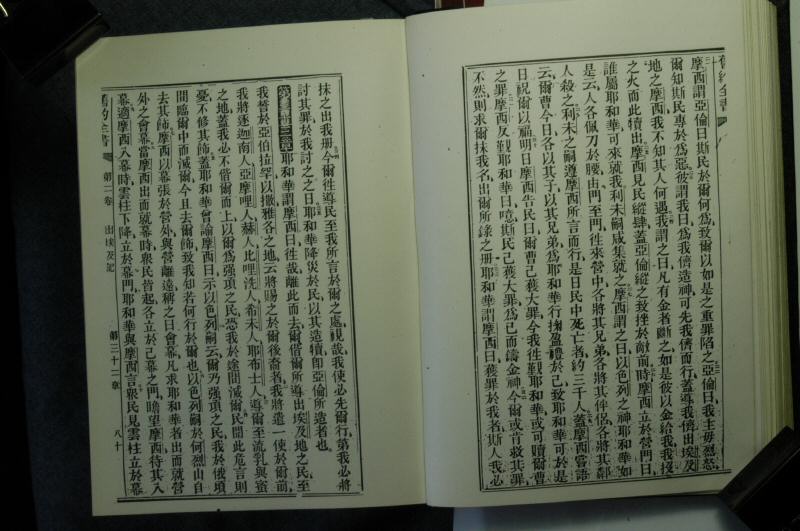 摩西謂亞倫曰斯民於爾何爲致爾以如是之重罪陷之亞倫曰我主毋烈怒
爾知斯民專於爲惡彼謂我曰爲我儕造神可先我儕而行蓋導我儕出埃及
地之摩西我不知其人何遇我謂之曰凡有金者斷之如是彼以金給我我投
之火而此犢出摩西見民縱肆蓋亞倫縱之致挫於敵前時摩西立於營門曰
誰屬耶和華可來就我利未嗣咸集就之摩西謂之曰以色列之神耶和華如
是云人各佩刀於腰由門至門徃來營中各將其兄弟各將其伴侶各將其鄰
人殺之利未之嗣遵摩西所言而行是日民中死亡者約三千人蓋摩西嘗語
云爾曹今日各以其子以其兄弟爲耶和華行掬盈禮於己致耶和華可於是
日祝爾以福明日摩西告民曰爾曹已獲大罪今我徃覲耶和華或可贖爾曹
之罪摩西反覲耶和華曰噫斯民已獲大罪爲己而鑄金神今爾或肯救其罪
不然則求爾抹我名出爾所錄之册耶和華謂摩西曰獲罪於我者斯人我必
抹之出我册今爾徃導民至我所言於爾之處視哉我使必先爾行第我必將
討其罪於我討之之日耶和華降災於民以其造犢卽亞倫所造者也
第三十三章耶和華謂摩西曰徃哉離此而去爾偕爾所導出埃及地之民至
我誓於亞伯拉罕以撒雅各之地云將賜之於爾後裔者我將遣一使於爾前
我將逐迦南人亞摩哩人赫人比哩洗人希未人耶布士人導爾至流乳與蜜
之地蓋我必不偕爾而上以爾爲强項之民恐我於途間滅爾民聞此危言則
憂不修其飾蓋耶和華曾諭摩西曰示以色列嗣云爾乃强項之民我於俄頃
間臨爾中而滅爾今且去爾飾致我知若何行於爾也以色列嗣於何烈山自
去其飾摩西以幕張於營外與營離遠稱之曰會幕凡求耶和華者出而就營
外之會幕當摩西出而就幕時衆民皆起各立於己幕之門瞻望摩西待其入
幕適摩西入幕時雲柱下降立於幕門耶和華與摩西言衆民見雲柱立於幕
舊約全書 第二卷 出埃及記 第三十二章 八十